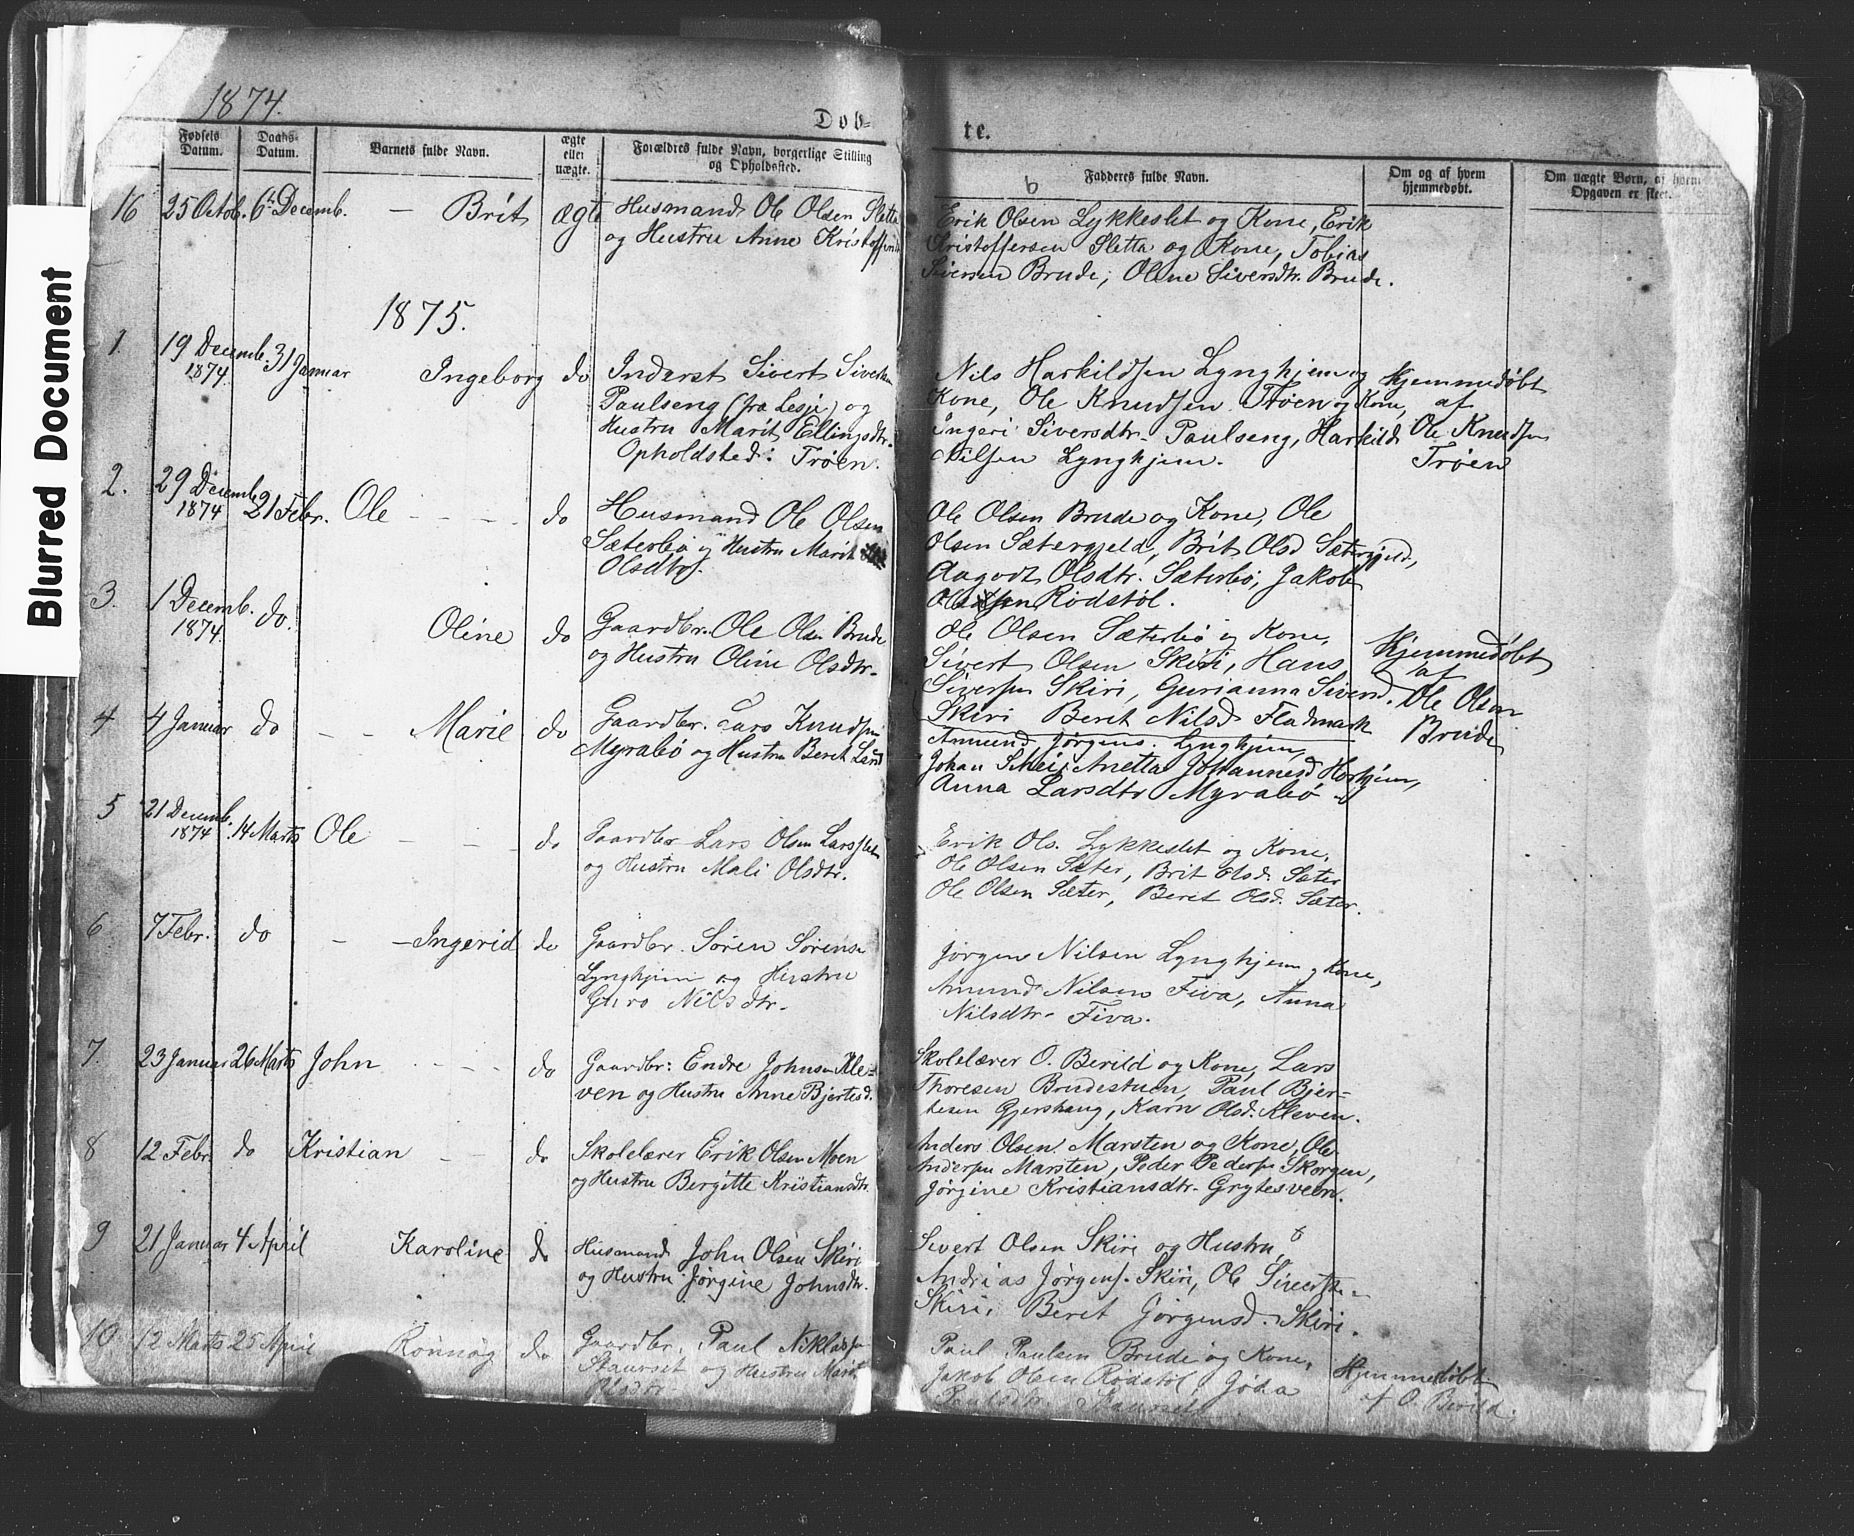 Blurred Document
1874.
Dob-
te.
Fødsels Datum.
Daabs-Datum.
Barnets fulde Navn.
ægte eller uægte.
Forældres fulde Navn, borgerlige Stilling og Opholdssted.
Fadderes fulde Navn.
Om og af hvem hjemmedøbt.
Om uægte Børn, af hvem Opgaven er skeet.
6
16 25 Octob. 6te Decemb. – Brit ægte
Husmand Ole Olsen Sletta
og Hustru Anne Kristoffersd
Erik Olsen Lykkeslet og Kone, Erik
Kristoffersen Sletta og Kone, Tobias
Siversen Brude, Oline Siversdtr. Brude.
1875.
1. 19 Decemb. 1874 31 Januar Ingeborg do
Inderst Sivert Sivertsen
Paulseng (fra Lesje) og
Hustru Marit Ellingsdtr.
Opholdsted: Trøen.
Nils Harkildsen Lynghjem og
Kone, Ole Knudsen Trøen og Kone,
Ingeri Siversdtr. Paulseng, Harkild
Nilsen Lynghjem.
Hjemmedøbt
af
Ole Knudsen
Trøen
2. 29 Decemb. 1874 21 Febr. Ole - - - - do
Husmand Ole Olsen
Sæterbø og Hustru Marit
Olsdtr.
Ole Olsen Brude og Kone, Ole
Olsen Sætergjeld, Brit Olsd Sætergjeld,
Aagodt Olsdtr. Sæterbø, Jakob
Olsen Rødstøl.
3. 1 Decemb. 1874 do. Oline do
Gaardbr. Ole Olsen Brude
og Hustru Oline Olsdtr.
Ole Olsen Sæterbø og Kone,
Sivert Olsen Skiri, Hans
Siversen Skiri, Gurianna Siversd.
Skiri Beret Nilsd Fladmark
Hjemmedøbt
af
Ole Olsen
Brude
4 4 Januar do – – Marie do
Gaardbr. Lars Knudsen
Myrabø og Hustru Beret Larsd
Amund Jørgens. Lynghjem,
Johan Anetta Johannesd Horghjem,
Anna Larsdtr Myrabø
5 21 Decemb. 1874 14 Marts Ole – – – do
Gaardbr Lars Olsen Larsslet
og Hustru Mali Olsdtr.
Erik Ols. Lykkeslet og Kone,
Ole Olsen Sæter, Brit Olsd. Sæter
Ole Olsen Sæter, Beret Olsd. Sæter.
6 7 Febr. do – – Ingerid do
Gaardbr. Søren Sørensen
Lynghjem og Hustru
Guro Nilsdtr.
Jørgen Nilsen Lynghjem og Kone,
Amund Nilsen Fiva, Anna
Nilsdtr. Fiva.
7. 23 Januar 26 Marts John - - - - do
Gaardbr: Endre Johnsen Kle-
ven og Hustru Anne Bjertesd.
Skolelærer O. Berild og Kone, Lars
Thoresen Brudestuen, Paul Bjer-
tesen Gjershaug, Karn Olsd. Kleven.
8 12 Febr. do Kristian – – do
Skolelærer Erik Olsen Moen
og Hustru Bergitte Kristiansdtr.
Anders Olsen Marsten og Kone, Ole
Andersen Marsten, Peder Pedersen Skorgen,
Jørgine Kristiansdtr. Grytesveen.
9 21 Januar 4 April Karoline do
Husmand John Olsen Skiri
og Hustru Jørgine Johnsdtr.
Sivert Olsen Skiri og Hustru,
Andrias Jørgens. Skiri, Ole Sivertsen
Skiri, Beret Jørgensd. Skiri.
10 12 Marts 25 April Rønnøg do
Gaardbr. Paul Niklasen
Staurset og Hustru Marit
Olsdtr
Paul Paulsen Brude og Kone,
Jakob Olsen Rødstøl, Gjøda
Paulsdtr. Staurset
Hjemmedøbt
af O. Berild.